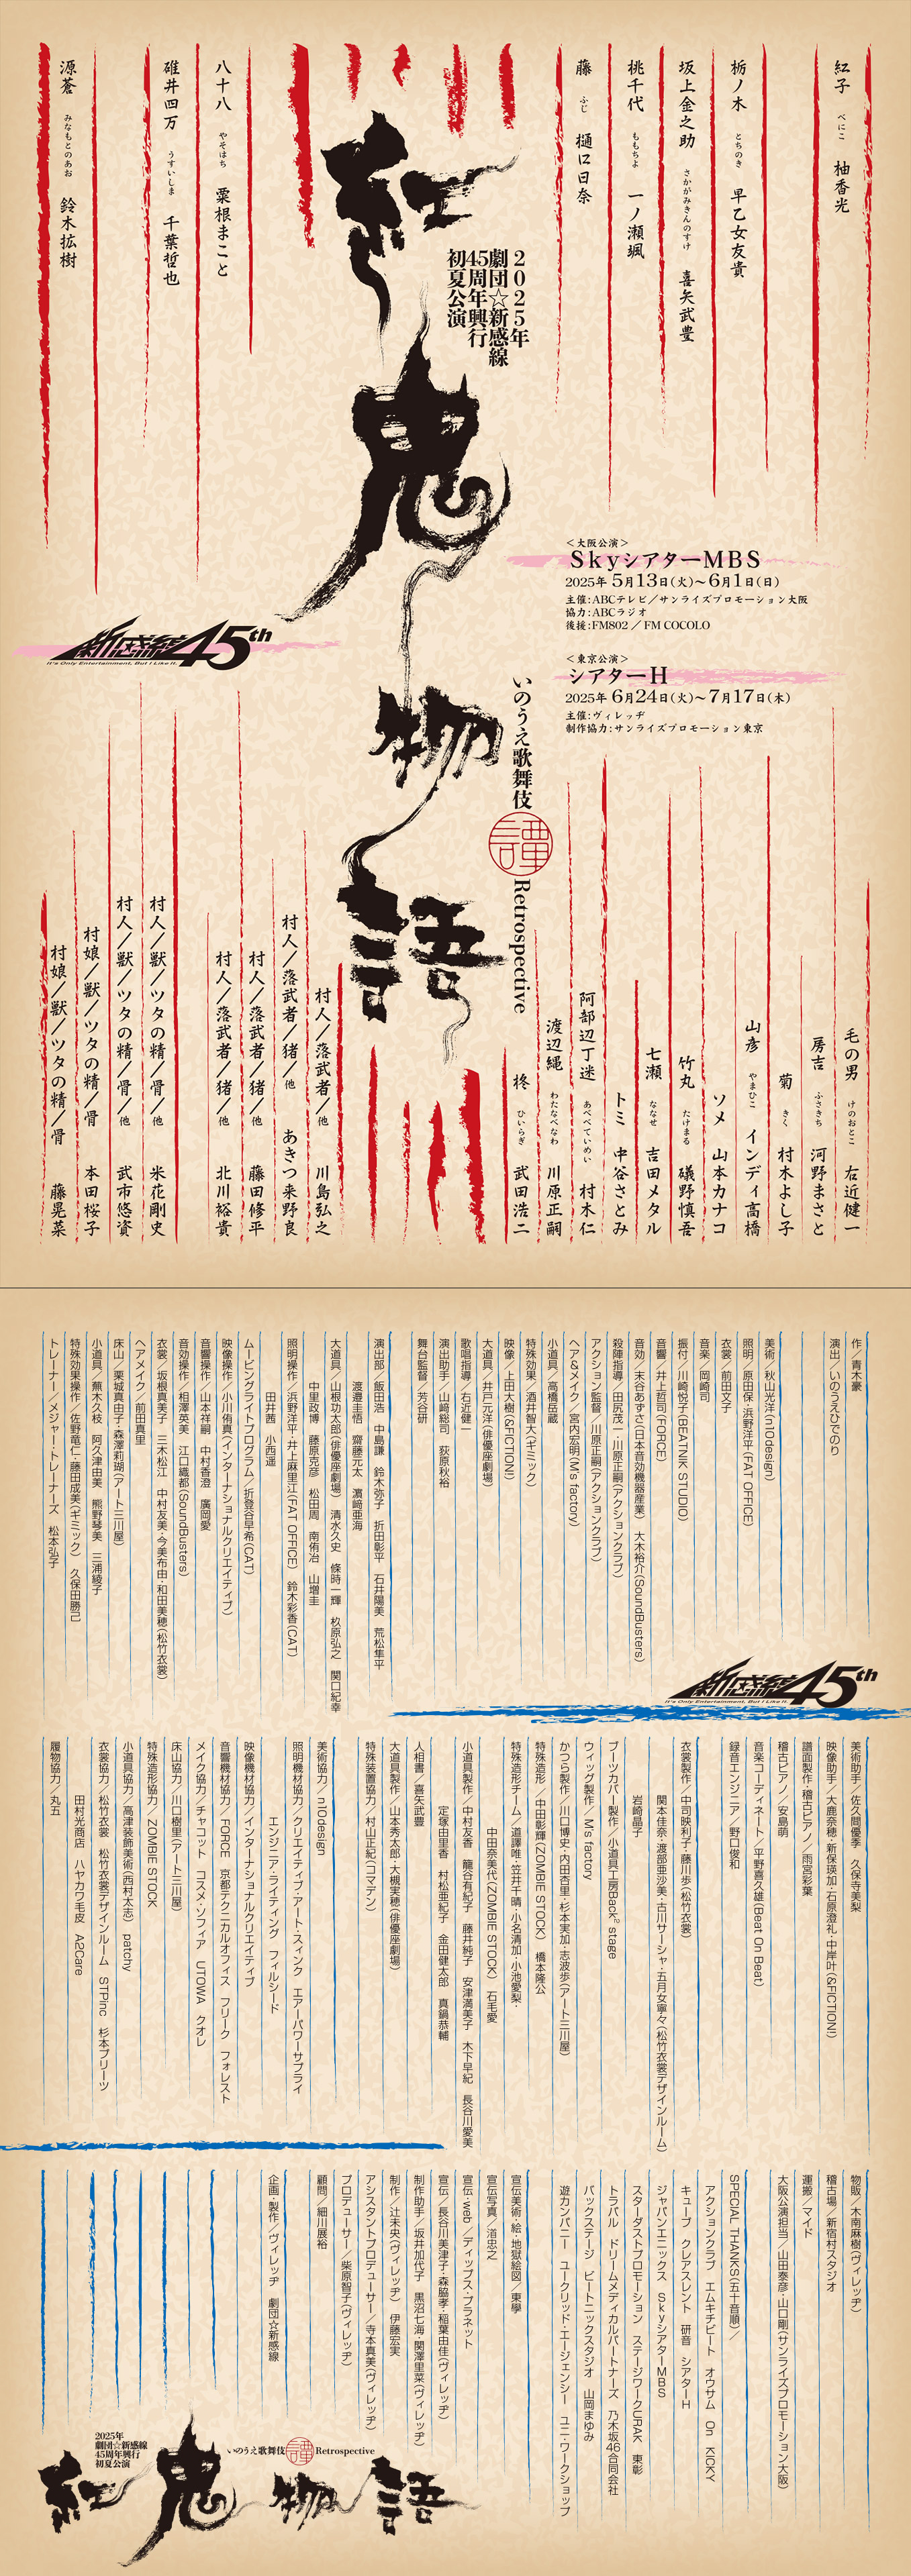 紅子 べにこ 柚香光
栃ノ木 とちのき 早乙女友貴
坂上金之助 さかがみきんのすけ 喜矢武豊
桃千代 ももちよ 一ノ瀬颯
藤 ふじ 樋口日奈
2025年
劇団☆新感線
45周年興行
初夏公演
紅鬼物語
八十八 やそはち 粟根まこと
碓井四万 うすいしま 千葉哲也
源蒼 みなもとのあお 鈴木拡樹
<大阪公演>
SkyシアターMBS
2025年 5月13日(火)~6月1日(日)
主催:ABCテレビ/サンライズプロモーション大阪
協力:ABCラジオ
後援:FM802 / FM COCOLO
<東京公演>
シアターH
2025年 6月24日(火)~7月17日(木)
主催:ヴィレッヂ
制作協力:サンライズプロモーション東京
新感線 45th
It's Only Entertainment, But I Like It.
いのうえ歌舞伎 譚 Retrospective
毛の男 けのおとこ 右近健一
房吉 ふさきち 河野まさと
菊 きく 村木よし子
山彦 やまひこ インディ高橋
ソメ 山本カナコ
竹丸 たけまる 礒野慎吾
七瀬 ななせ 吉田メタル
トミ 中谷さとみ
阿部辺丁迷 あべべていめい 村木仁
渡辺縄 わたなべなわ 川原正嗣
柊 ひいらぎ 武田浩二
村人/落武者/他 川島弘之
村人/落武者/猪/他 あきつ来野良
村人/落武者/猪/他 藤田修平
村人/落武者/猪/他 北川裕貴
村人/獣/ツタの精/骨/他 米花剛史
村人/獣/ツタの精/骨/他 武市悠資
村娘/獣/ツタの精/骨 本田桜子
村娘/獣/ツタの精/骨 藤晃菜
作/青木豪
演出/いのうえひでのり
美術/秋山光洋(n10design)
照明/原田保・浜野洋平(FAT OFFICE)
衣裳/前田文子
音楽/岡崎司
振付/川崎悦子(BEATNIK STUDIO)
音響/井上哲司(FORCE)
音効/末谷あずさ(日本音効機器産業) 大木裕介(SoundBusters)
殺陣指導/田尻茂一・川原正嗣(アクションクラブ)
アクション監督/川原正嗣(アクションクラブ)
ヘア&メイク/宮内宏明(M's factory)
小道具/高橋岳蔵
特殊効果/酒井智大(ギミック)
映像/上田大樹(&FICTION!)
大道具/井戸元洋(俳優座劇場)
歌唱指導/右近健一
演出助手/山﨑総司 荻原秋裕
舞台監督/芳谷研
演出部/飯田浩 中島謙 鈴木弥子 折田彰平 石井陽美 荒松隼平
渡邉圭悟 齋藤元太 濵﨑亜海
大道具/山根功太郎(俳優座劇場) 清水久史 條時一輝 杦原弘之 関口紀幸
中里政博 藤原克彦 松田周 南侑治 山増圭
照明操作/浜野洋平・井上麻里江(FAT OFFICE) 鈴木彩香(CAT)
田井茜 小西遥
ムービングライトプログラム/折登谷早希(CAT)
映像操作/小川侑真(インターナショナルクリエイティブ)
音響操作/山本祥嗣 中村香澄 廣岡愛
音効操作/相澤英美 江口織都(SoundBusters)
衣裳/坂根真美子 三木松江 中村友美・今美布由・和田美穂(松竹衣裳)
ヘアメイク/前田真里
床山/栗城真由子・森澤莉瑚(アート三川屋)
小道具/蕪木久枝 阿久津由美 熊野琴美 三浦綾子
特殊効果操作/佐野竜仁・藤田成美(ギミック) 久保田勝己
トレーナー/メジャー・トレーナーズ 松本弘子
新感線 45th
It's Only Entertainment, But I Like It.
美術助手/佐久間優季 久保寺美梨
映像助手/大鹿奈穂・新保瑛加・石原澄礼・中岸叶(&FICTION!)
譜面製作・稽古ピアノ/雨宮彩葉
稽古ピアノ/安島萌
音楽コーディネート/平野喜久雄(Beat On Beat)
録音エンジニア/野口俊和
衣裳製作/中司映利子・藤川歩(松竹衣裳)
関本佳奈・渡部亜沙美・古川サーシャ・五月女寧々(松竹衣裳デザインルーム)
岩崎晶子
ブーツカバー製作/小道具工房Back² stage
ウィッグ製作/M's factory
かつら製作/川口博史・内田杏里・杉本実加・志波歩(アート三川屋)
特殊造形/中田彰輝(ZOMBIE STOCK) 橋本隆公
特殊造形チーム/道譯唯・笠井千晴・小名清加・小池愛梨・
中田奈美代(ZOMBIE STOCK) 石毛愛
小道具製作/中村友香 籠谷有紀子 藤井純子 安津満美子 木下早紀 長谷川愛美
定塚由里香 村松亜紀子 金田健太郎 真鍋恭輔
人相書/喜矢武豊
大道具製作/山本秀太郎・大槻実穂(俳優座劇場)
特殊装置協力/村山正紀(コマデン)
美術協力/n10design
照明機材協力/クリエイティブ・アート・スィンク エアーパワーサプライ
エンジニア・ライティング フィルシード
映像機材協力/インターナショナルクリエイティブ
音響機材協力/FORCE 京都テクニカルオフィス フリーク フォレスト
メイク協力/チャコット コスメ・ソフィア UTOWA クオレ
床山協力/川口樹里(アート三川屋)
特殊造形協力/ZOMBIE STOCK
小道具協力/高津装飾美術(西村太志) patchy
衣裳協力/松竹衣裳 松竹衣裳デザインルーム STPinc 杉本プリーツ
田村光商店 ハヤカワ毛皮 A2Care
履物協力/丸五
物販/木南麻樹(ヴィレッヂ)
稽古場/新宿村スタジオ
運搬/マイド
大阪公演担当/山田泰彦・山口剛(サンライズプロモーション大阪)
SPECIAL THANKS(五十音順)/
アクションクラブ エムキチビート オウサム On KICKY
キューブ クレアスレント 研音 シアターH
ジャパンエニックス SkyシアターMBS
スターダストプロモーション ステージワークURAK 東彰
トラバル ドリームメディカルパートナーズ 乃木坂46合同会社
バックステージ ビートニックスタジオ 山岡まゆみ
遊カンパニー ユークリッド・エージェンシー ユニ・ワークショップ
宣伝美術・絵・地獄絵図/東學
宣伝写真/渞忠之
宣伝・web/ディップス・プラネット
宣伝/長谷川美津子・森脇孝・稲葉由佳(ヴィレッヂ)
制作助手/坂井加代子 黒沼七海・関澤里菜(ヴィレッヂ)
制作/辻未央(ヴィレッヂ) 伊藤宏実
アシスタントプロデューサー/寺本真美(ヴィレッヂ)
プロデューサー/柴原智子(ヴィレッヂ)
顧問/細川展裕
企画・製作/ヴィレッヂ 劇団☆新感線
2025年
劇団☆新感線
45周年興行
初夏公演
いのうえ歌舞伎 譚 Retrospective
紅鬼物語